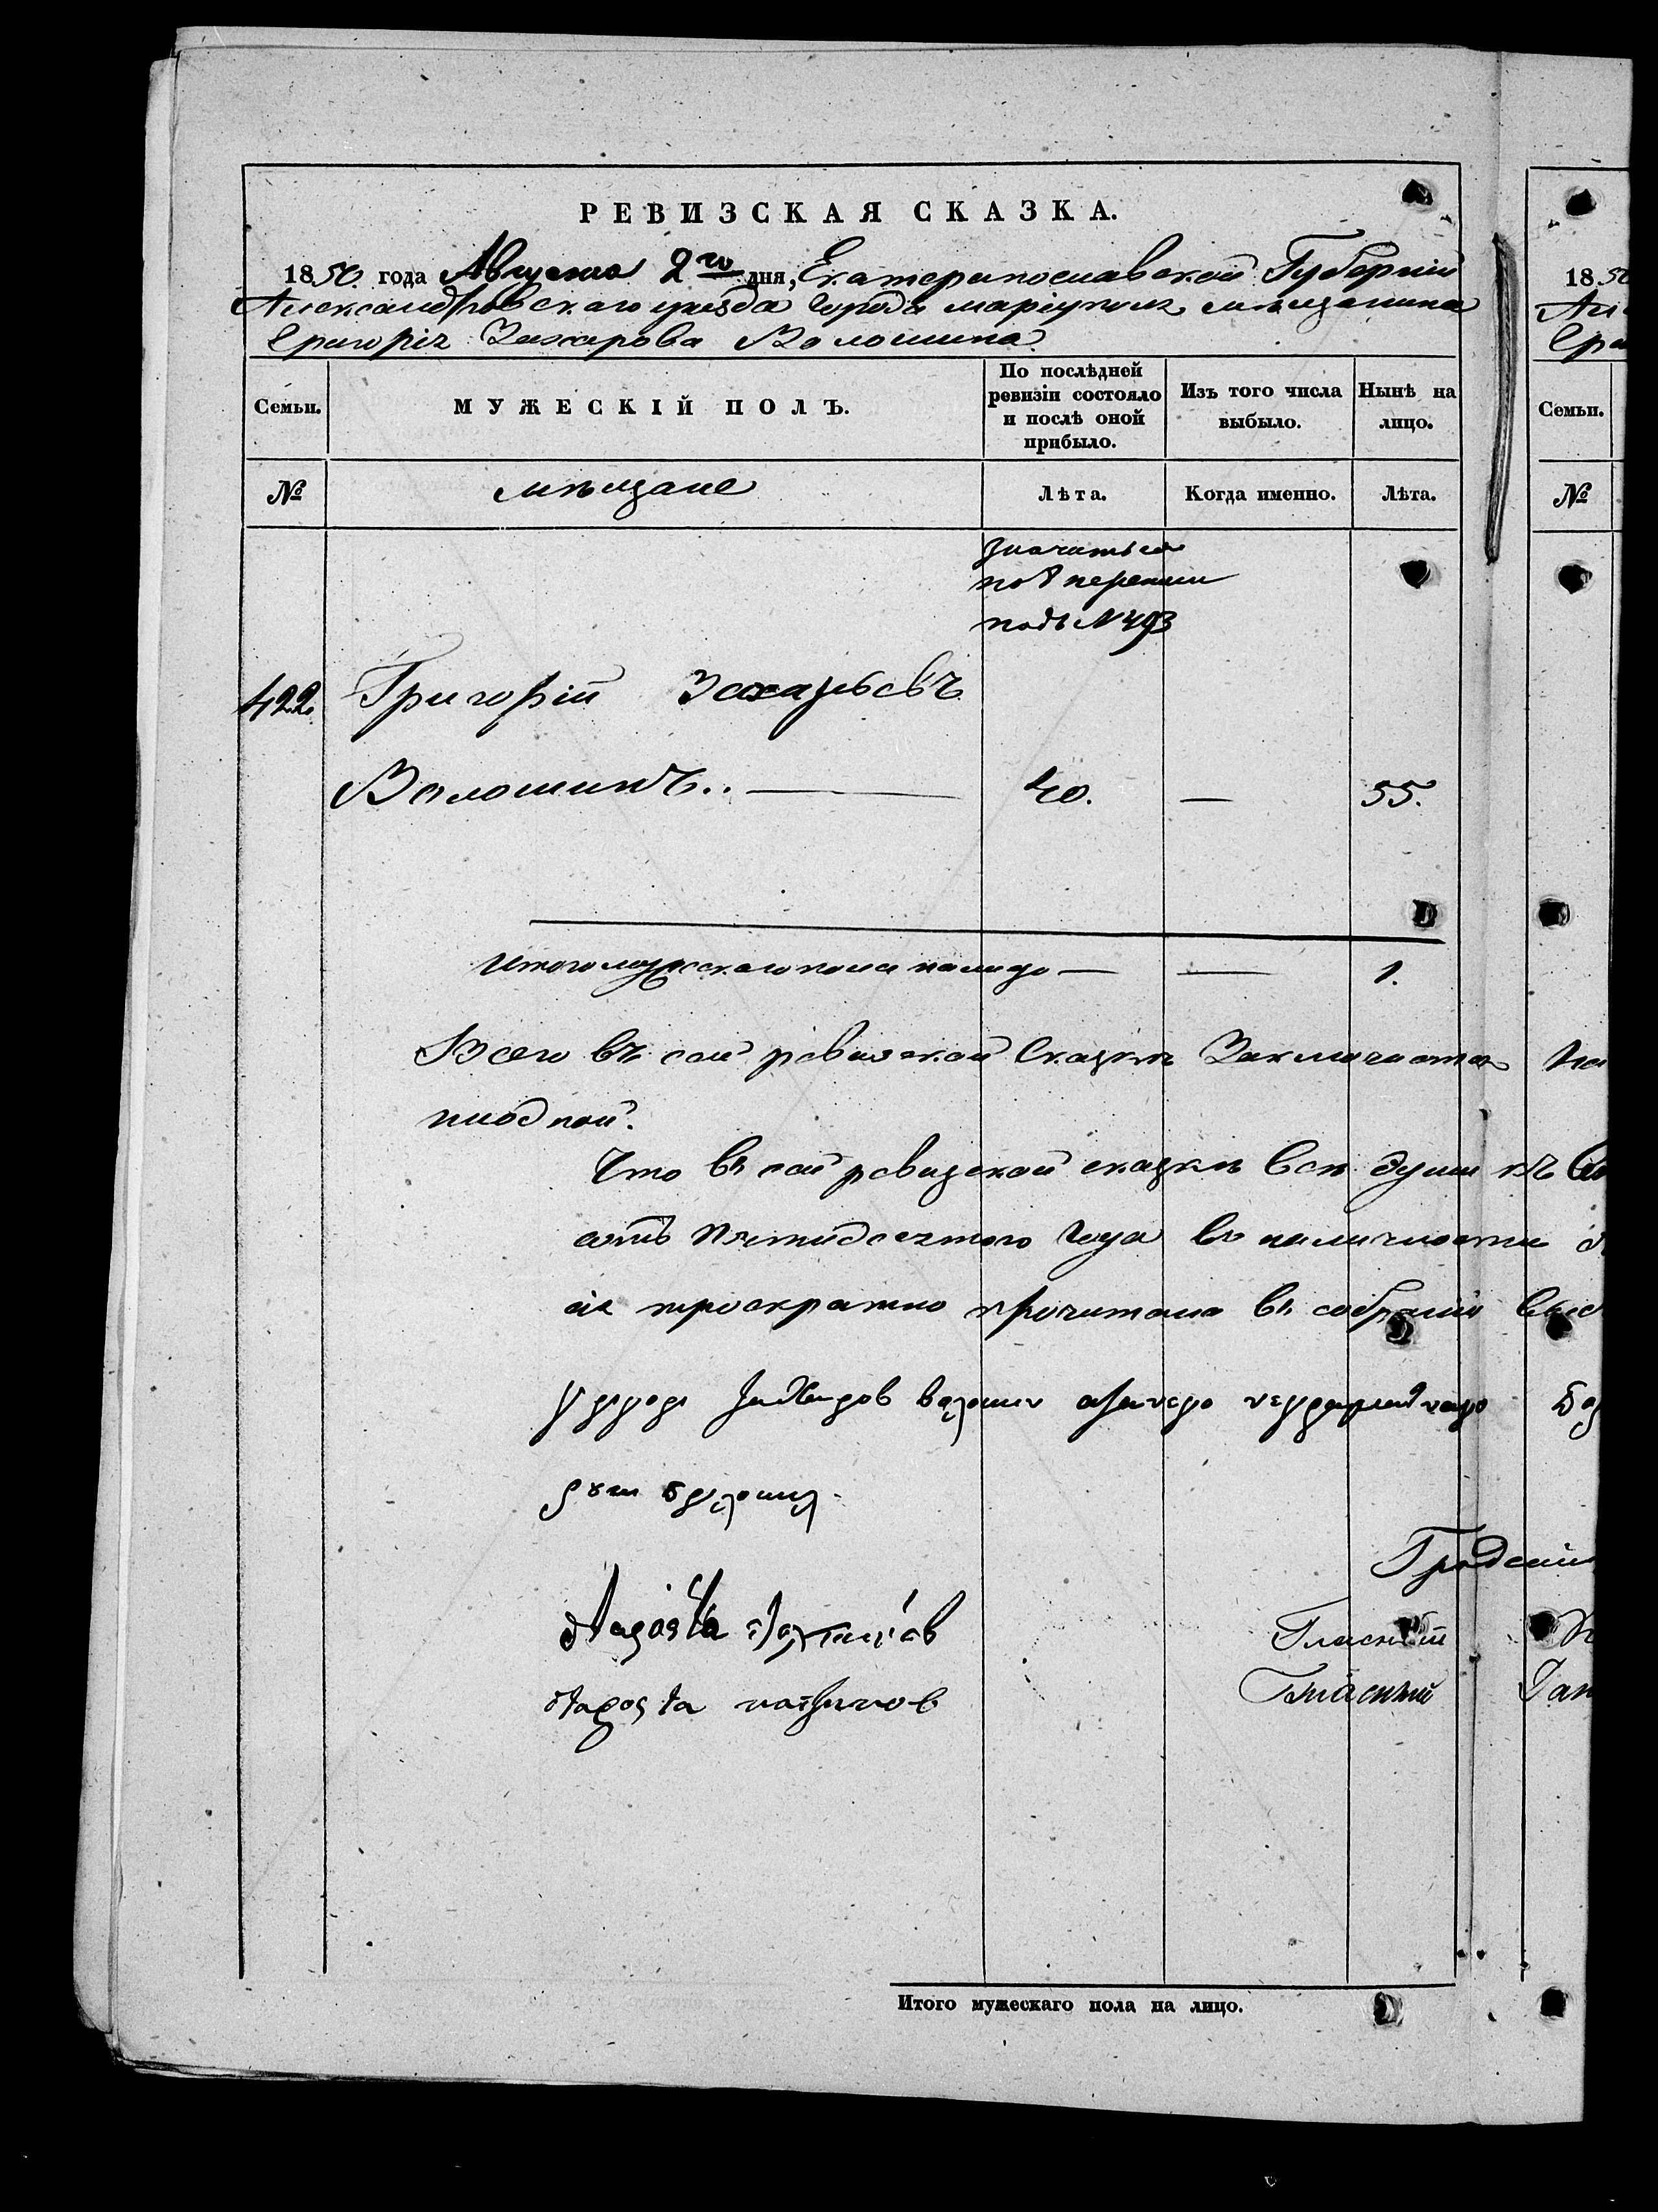 РЕВИЗСКАЯ СКАЗКА.
1850 года Августа 2го дня, Екатеринославской Губерніи
Александровскаго уезда города мариуполя мѣщанина
Григорія Захарова Волошина
Семьи.
МУЖЕСКІЙ ПОЛЪ.
По послѣдней ревизіи состояло и послѣ оной прибыло.
Изъ того числа выбыло.
Нынѣ на лицо.
№
мѣщане
Лѣта.
Когда именно.
Лѣта.
значиться
по 8 переписи
подъ №493
422. Григорій Захарьевъ
Волошинъ.. 40. — 55.
Итого мужескаго пола налицо — — 1.
Всего въ сей ревизской Сказкѣ Заключается на
ниодной.
Что въ сей ревизской сказкѣ всѣ души къ
сотъ Пятидесятого года въ наличности
ія троекратно прочитана въ собраніи
Захаров
Градскій
староста Гласный
староста Гласный
Итого мужескаго пола на лицо.
1850
Семьи.
№